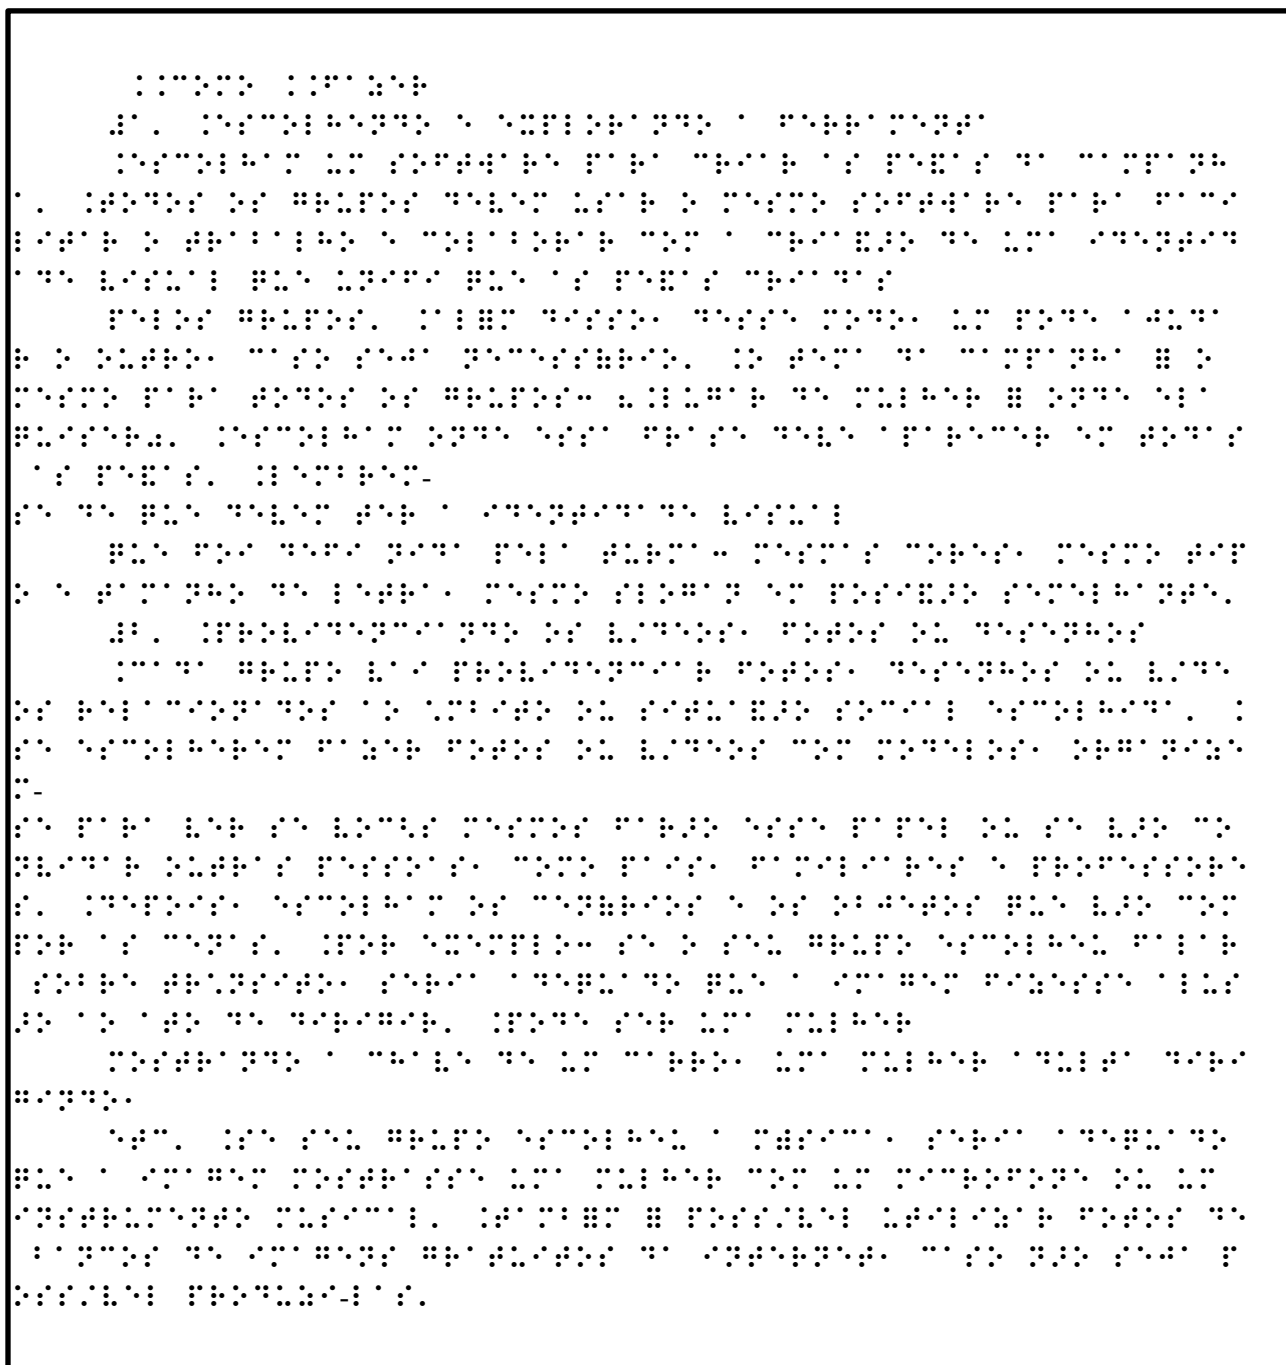 ⠨⠨⠉⠕⠍⠕ ⠨⠨⠋⠁⠵⠑⠗
⠼⠁⠄ ⠨⠑⠎⠉⠕⠇⠓⠑⠝⠙⠕ ⠑ ⠑⠭⠏⠇⠕⠗⠁⠝⠙⠕ ⠁ ⠋⠑⠗⠗⠁⠍⠑⠝⠞⠁
⠨⠑⠎⠉⠕⠇⠓⠁⠍ ⠥⠍ ⠎⠕⠋⠞⠺⠁⠗⠑ ⠏⠁⠗⠁ ⠉⠗⠊⠁⠗ ⠁⠎ ⠏⠑⠯⠁⠎ ⠙⠁ ⠉⠁⠍⠏⠁⠝⠓
⠁⠄ ⠨⠞⠕⠙⠕⠎ ⠕⠎ ⠛⠗⠥⠏⠕⠎ ⠙⠑⠧⠑⠍ ⠥⠎⠁⠗ ⠕ ⠍⠑⠎⠍⠕ ⠎⠕⠋⠞⠺⠁⠗⠑ ⠏⠁⠗⠁ ⠋⠁⠉⠊
⠇⠊⠞⠁⠗ ⠕ ⠞⠗⠁⠃⠁⠇⠓⠕ ⠑ ⠉⠕⠇⠁⠃⠕⠗⠁⠗ ⠉⠕⠍ ⠁ ⠉⠗⠊⠁⠯⠜⠕ ⠙⠑ ⠥⠍⠁ ⠊⠙⠑⠝⠞⠊⠙
⠁⠙⠑ ⠧⠊⠎⠥⠁⠇ ⠟⠥⠑ ⠥⠝⠊⠋⠊ ⠟⠥⠑ ⠁⠎ ⠏⠑⠯⠁⠎ ⠉⠗⠊⠁⠙⠁⠎
⠏⠑⠇⠕⠎ ⠛⠗⠥⠏⠕⠎⠄ ⠨⠁⠇⠿⠍ ⠙⠊⠎⠎⠕⠂ ⠙⠑⠎⠎⠑ ⠍⠕⠙⠕⠂ ⠥⠍ ⠏⠕⠙⠑ ⠁⠚⠥⠙⠁
⠗ ⠕ ⠕⠥⠞⠗⠕⠂ ⠉⠁⠎⠕ ⠎⠑⠚⠁ ⠝⠑⠉⠑⠎⠎⠷⠗⠊⠕⠄ ⠨⠕ ⠞⠑⠍⠁ ⠙⠁ ⠉⠁⠍⠏⠁⠝⠓⠁ ⠿ ⠕
⠍⠑⠎⠍⠕ ⠏⠁⠗⠁ ⠞⠕⠙⠕⠎ ⠕⠎ ⠛⠗⠥⠏⠕⠎⠒ ⠦⠨⠇⠥⠛⠁⠗ ⠙⠑ ⠍⠥⠇⠓⠑⠗ ⠿ ⠕⠝⠙⠑ ⠑⠇⠁
⠟⠥⠊⠎⠑⠗⠴⠄ ⠨⠑⠎⠉⠕⠇⠓⠁⠍ ⠕⠝⠙⠑ ⠑⠎⠎⠁ ⠋⠗⠁⠎⠑ ⠙⠑⠧⠑ ⠁⠏⠁⠗⠑⠉⠑⠗ ⠑⠍ ⠞⠕⠙⠁⠎
⠁⠎ ⠏⠑⠯⠁⠎⠄ ⠨⠇⠑⠍⠃⠗⠑⠍-
⠎⠑ ⠙⠑ ⠟⠥⠑ ⠙⠑⠧⠑⠍ ⠞⠑⠗ ⠁ ⠊⠙⠑⠝⠞⠊⠙⠁⠙⠑ ⠧⠊⠎⠥⠁⠇
⠟⠥⠑ ⠋⠕⠊ ⠙⠑⠋⠊ ⠝⠊⠙⠁ ⠏⠑⠇⠁ ⠞⠥⠗⠍⠁⠒ ⠍⠑⠎⠍⠁⠎ ⠉⠕⠗⠑⠎⠂ ⠍⠑⠎⠍⠕ ⠞⠊⠏
⠕ ⠑ ⠞⠁⠍⠁⠝⠓⠕ ⠙⠑ ⠇⠑⠞⠗⠁⠂ ⠍⠑⠎⠍⠕ ⠎⠇⠕⠛⠁⠝ ⠑⠍ ⠏⠕⠎⠊⠯⠜⠕ ⠎⠑⠍⠑⠇⠓⠁⠝⠞⠑⠄
⠼⠃⠄ ⠨⠏⠗⠕⠧⠊⠙⠑⠝⠉⠊⠁⠝⠙⠕ ⠕⠎ ⠧⠌⠙⠑⠕⠎⠂ ⠋⠕⠞⠕⠎ ⠕⠥ ⠙⠑⠎⠑⠝⠓⠕⠎
⠨⠉⠁⠙⠁ ⠛⠗⠥⠏⠕ ⠧⠁⠊ ⠏⠗⠕⠧⠊⠙⠑⠝⠉⠊⠁⠗ ⠋⠕⠞⠕⠎⠂ ⠙⠑⠎⠑⠝⠓⠕⠎ ⠕⠥ ⠧⠌⠙⠑
⠕⠎ ⠗⠑⠇⠁⠉⠊⠕⠝⠁⠙⠕⠎ ⠁⠕ ⠡⠍⠃⠊⠞⠕ ⠕⠥ ⠎⠊⠞⠥⠁⠯⠜⠕ ⠎⠕⠉⠊⠁⠇ ⠑⠎⠉⠕⠇⠓⠊⠙⠁⠄ ⠨
⠎⠑ ⠑⠎⠉⠕⠇⠓⠑⠗⠑⠍ ⠋⠁⠵⠑⠗ ⠋⠕⠞⠕⠎ ⠕⠥ ⠧⠌⠙⠑⠕⠎ ⠉⠕⠍ ⠍⠕⠙⠑⠇⠕⠎⠂ ⠕⠗⠛⠁⠝⠊⠵⠑
⠍-
⠎⠑ ⠏⠁⠗⠁ ⠧⠑⠗ ⠎⠑ ⠧⠕⠉⠣⠎ ⠍⠑⠎⠍⠕⠎ ⠋⠁⠗⠜⠕ ⠑⠎⠎⠑ ⠏⠁⠏⠑⠇ ⠕⠥ ⠎⠑ ⠧⠜⠕ ⠉⠕
⠝⠧⠊⠙⠁⠗ ⠕⠥⠞⠗⠁⠎ ⠏⠑⠎⠎⠕⠁⠎⠂ ⠉⠕⠍⠕ ⠏⠁⠊⠎⠂ ⠋⠁⠍⠊⠇⠊⠁⠗⠑⠎ ⠑ ⠏⠗⠕⠋⠑⠎⠎⠕⠗⠑
⠎⠄ ⠨⠙⠑⠏⠕⠊⠎⠂ ⠑⠎⠉⠕⠇⠓⠁⠍ ⠕⠎ ⠉⠑⠝⠷⠗⠊⠕⠎ ⠑ ⠕⠎ ⠕⠃⠚⠑⠞⠕⠎ ⠟⠥⠑ ⠧⠜⠕ ⠉⠕⠍
⠏⠕⠗ ⠁⠎ ⠉⠑⠝⠁⠎⠄ ⠨⠏⠕⠗ ⠑⠭⠑⠍⠏⠇⠕⠒ ⠎⠑ ⠕ ⠎⠑⠥ ⠛⠗⠥⠏⠕ ⠑⠎⠉⠕⠇⠓⠑⠥ ⠋⠁⠇⠁⠗
⠎⠕⠃⠗⠑ ⠞⠗⠡⠝⠎⠊⠞⠕⠂ ⠎⠑⠗⠊⠁ ⠁⠙⠑⠟⠥⠁⠙⠕ ⠟⠥⠑ ⠁ ⠊⠍⠁⠛⠑⠍ ⠋⠊⠵⠑⠎⠎⠑ ⠁⠇⠥⠎
⠜⠕ ⠁⠕ ⠁⠞⠕ ⠙⠑ ⠙⠊⠗⠊⠛⠊⠗⠄ ⠨⠏⠕⠙⠑ ⠎⠑⠗ ⠥⠍⠁ ⠍⠥⠇⠓⠑⠗
⠍⠕⠎⠞⠗⠁⠝⠙⠕ ⠁ ⠉⠓⠁⠧⠑ ⠙⠑ ⠥⠍ ⠉⠁⠗⠗⠕⠂ ⠥⠍⠁ ⠍⠥⠇⠓⠑⠗ ⠁⠙⠥⠇⠞⠁ ⠙⠊⠗⠊
⠛⠊⠝⠙⠕⠂
⠑⠞⠉⠄ ⠨⠎⠑ ⠎⠑⠥ ⠛⠗⠥⠏⠕ ⠑⠎⠉⠕⠇⠓⠑⠥ ⠁ ⠍⠾⠎⠊⠉⠁⠂ ⠎⠑⠗⠊⠁ ⠁⠙⠑⠟⠥⠁⠙⠕
⠟⠥⠑ ⠁ ⠊⠍⠁⠛⠑⠍ ⠍⠕⠎⠞⠗⠁⠎⠎⠑ ⠥⠍⠁ ⠍⠥⠇⠓⠑⠗ ⠉⠕⠍ ⠥⠍ ⠍⠊⠉⠗⠕⠋⠕⠝⠑ ⠕⠥ ⠥⠍
⠊⠝⠎⠞⠗⠥⠍⠑⠝⠞⠕ ⠍⠥⠎⠊⠉⠁⠇⠄ ⠨⠞⠁⠍⠃⠿⠍ ⠿ ⠏⠕⠎⠎⠌⠧⠑⠇ ⠥⠞⠊⠇⠊⠵⠁⠗ ⠋⠕⠞⠕⠎ ⠙⠑
⠃⠁⠝⠉⠕⠎ ⠙⠑ ⠊⠍⠁⠛⠑⠝⠎ ⠛⠗⠁⠞⠥⠊⠞⠕⠎ ⠙⠁ ⠊⠝⠞⠑⠗⠝⠑⠞⠂ ⠉⠁⠎⠕ ⠝⠜⠕ ⠎⠑⠚⠁ ⠏
⠕⠎⠎⠌⠧⠑⠇ ⠏⠗⠕⠙⠥⠵⠊-⠇⠁⠎⠄